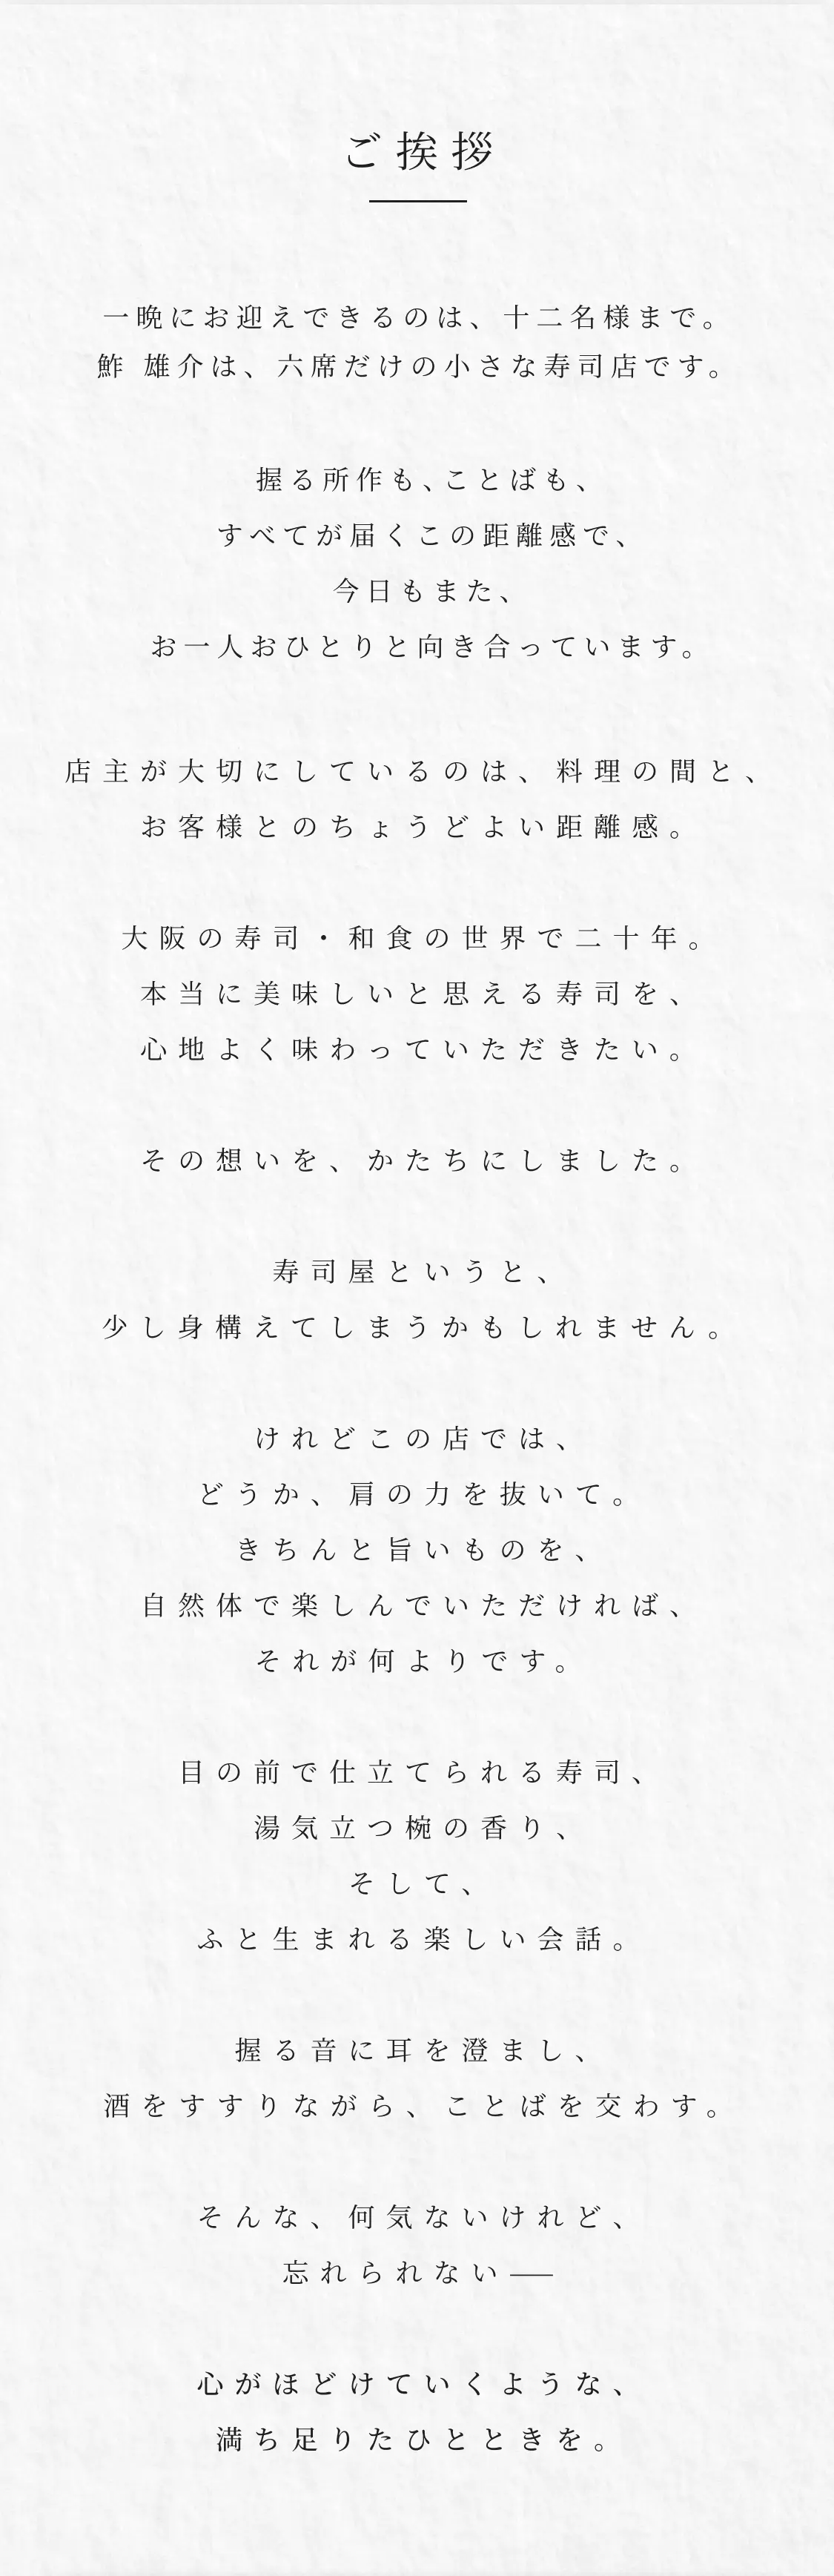 ご挨拶
一晩にお迎えできるのは、十二名様まで。
鮓 雄介は、六席だけの小さな寿司店です。
握る所作も、ことばも、
すべてが届くこの距離感で、
今日もまた、
お一人おひとりと向き合っています。
店主が大切にしているのは、料理の間と、
お客様とのちょうどよい距離感。
大阪の寿司・和食の世界で二十年。
本当に美味しいと思える寿司を、
心地よく味わっていただきたい。
その想いを、かたちにしました。
寿司屋というと、
少し身構えてしまうかもしれません。
けれどこの店では、
どうか、肩の力を抜いて。
きちんと旨いものを、
自然体で楽しんでいただければ、
それが何よりです。
目の前で仕立てられる寿司、
湯気立つ椀の香り、
そして、
ふと生まれる楽しい会話。
握る音に耳を澄まし、
酒をすすりながら、ことばを交わす。
そんな、何気ないけれど、
忘れられない──
心がほどけていくような、
満ち足りたひとときを。